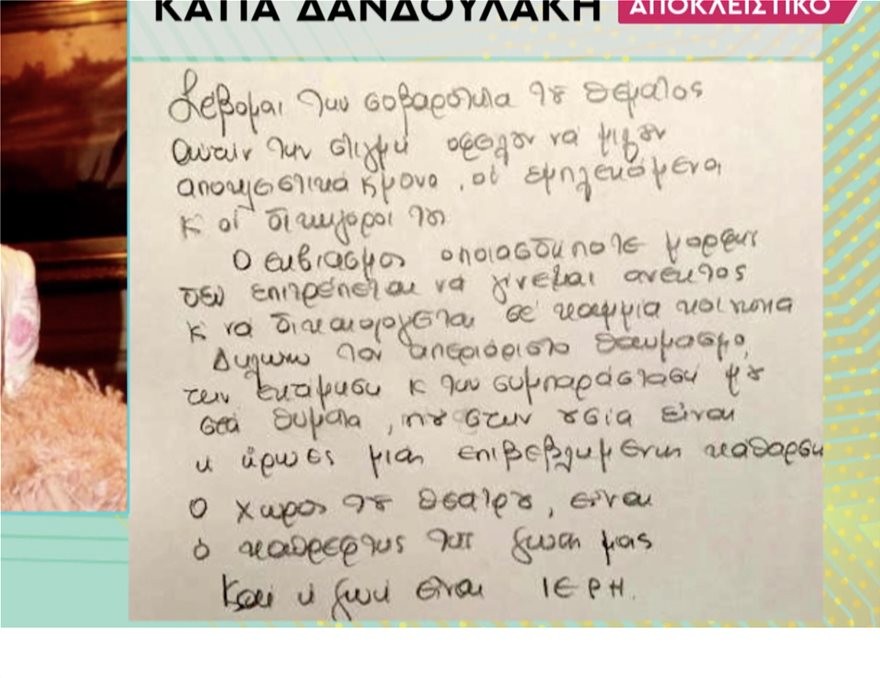 ΚΑΤΙΑ ΔΑΝΔΟΥΛΑΚΗ ΑΠΟΚΛΕΙΣΤΙΚΟ
Σέβομαι την σοβαρότητα τȣ θεματος
Αυτην την στιγμή οφειλȣν να μιλȣν
αποκλειστικά κ μονο, οι εμπλεκόμενοι
κ οι δικηγοροι τȣς
Ο εκβιασμος οποιασδηποτε μορφης
δεν επιτρέπεται να γίνεται ανεκτος
κ να δικαιολογειται σε καμμια κοινωνια
Δηλωνω τον απεριόριστο θαυμασμο,
την εκτιμηση κ την συμπαράσταση μȣ
στα θυματα, πȣ στην ȣσία είναι
κ ήρωες μιας επιβεβλημενης καθαρσης
Ο χωρος τȣ θεατρȣ, είναι
ο καθρεφτης της ζωης μας
Και η ζωή ειναι ΙΕΡΗ.